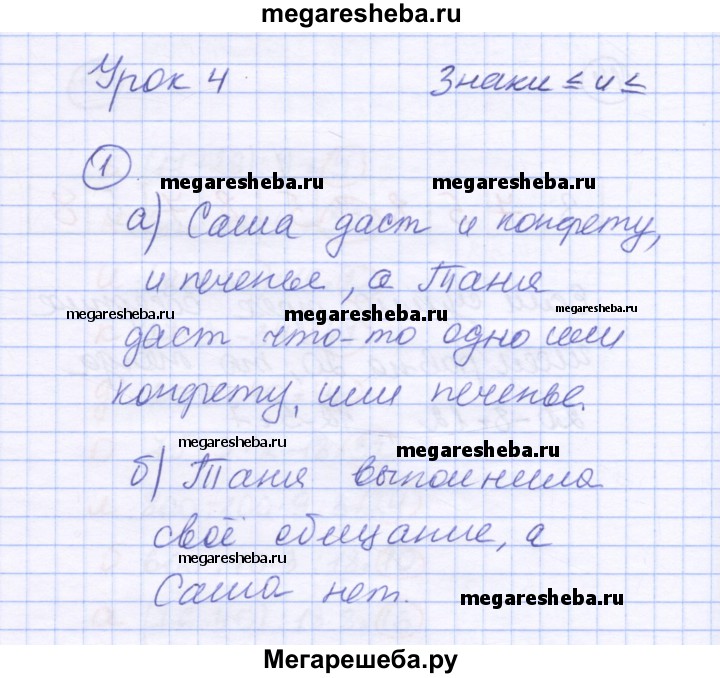 megaresheba.ru
Урок 4 Знаки ≤ и ≤
1
megaresheba.ru megaresheba.ru
а) Саша даст и конфету,
и печенье, а Таня
megaresheba.ru megaresheba.ru megaresheba.ru
даст что-то одно или
конфету, или печенье.
megaresheba.ru megaresheba.ru
б) Таня выполнила
своё обещание, а
megaresheba.ru
Саша нет. megaresheba.ru
Мегарешеба.ру